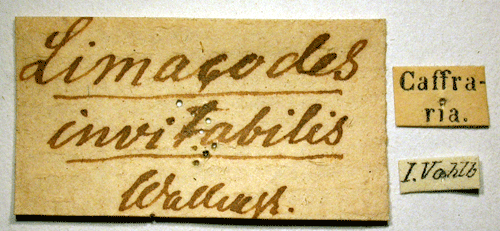 Limaçodes
invitabilis
Wallengr.
Caffra-
ria.
I. Vahlb